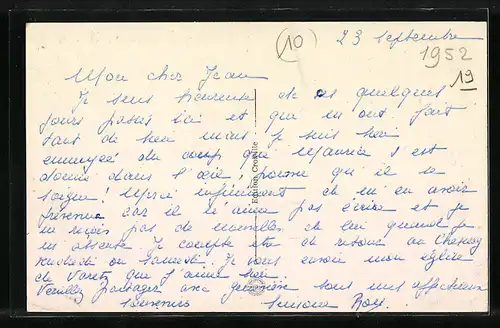 10
23 Septembre
1952
19
Mon cher Jean
Je suis heureuse de ces quelques
jours passés ici et qui m'ont fait
tant de bien mais je suis bien
ennuyée du coup que Maurice s'est
donné dans l'œil; pourvu qu'il se
soigne! Merci infiniment de m'en avoir
prévenue car il n'aime pas écrire et je
n'aurais pas de nouvelles de lui quand je
m'absente. Je compte être de retour au Chesnay
vendredi ou samedi. Je vous envoie mon église
de Varetz que j'aime bien.
Veuillez partager avec Geneviève tous mes affectueux
souvenirs Simone
Edition Croville